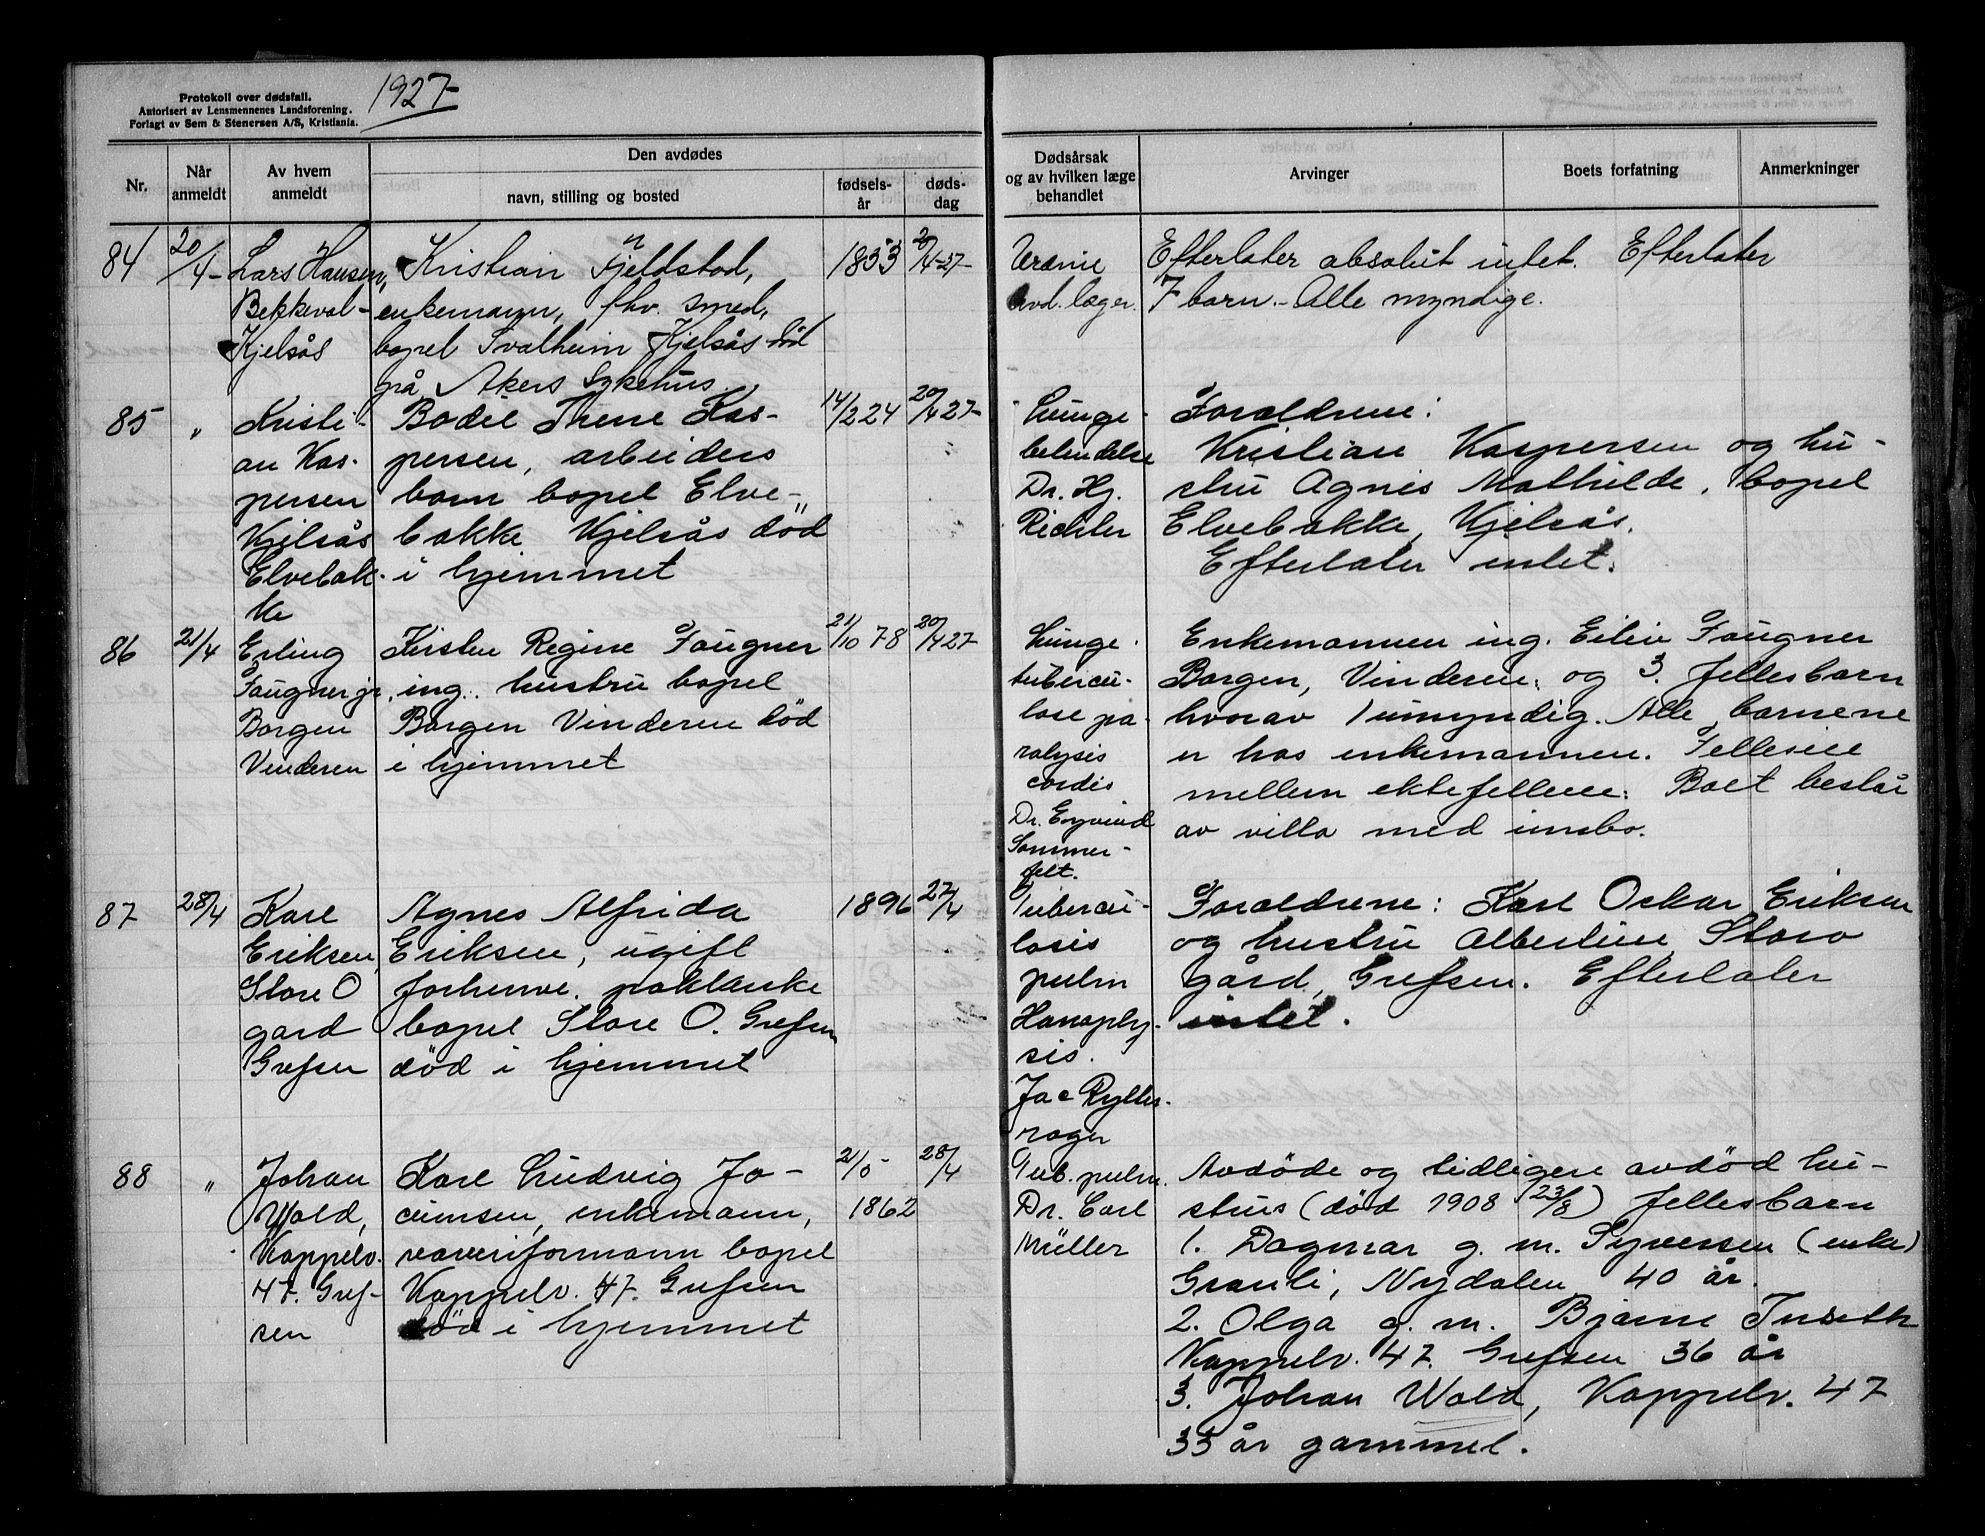 1927
Protokoll over dødsfall.
Autorisert av Lensmennenes Landsforening.
Forlagt av Sem & Stenersen A/S, Kristiania.
Nr.
Når anmeldt
Av hvem anmeldt
Den avdødes
navn, stilling og bosted
fødsels-år
døds-dag
Dødsårsak og av hvilken læge behandlet
Arvinger
Boets forfatning
Anmerkninger
84
20/4-
Lars Hansen,
Bekkeval-
Kjelsås
Kristian Fjeldstad,
enkemann, fhv. smed,
bopel Svalheim Kjelsås död
på Akers Sykehus.
1853
2/4-27-
Uræmie
Avd. læger.
Efterlater absolut intet. Efterlater
7 barn. - Alle myndige.
85
"
Kristi-
an Kas-
persen
Kjelsås
Elvebak-
ke
Bodil Irene Kas-
persen, arbeiders
barn bopel Elve-
bakke Kjelsås död
i hjemmet
14/2 24
20/4 27-
Lunge-
betendelse
Dr. Hj.
Richter
Foraldrene:
Kristian Kaspersen og hu-
stru Agnes Mathilde, bopel
Elvebakke, Kjelsås.
Efterlater intet.
86
21/4
Erling
Faugner jr,
Borgen
Vinderen
Kirsten Regine Faugner
ing. hustru bopel
Borgen Vinderen död
i hjemmet
21/10 78
20/4 27-
Lunge-
tubercu-
lose pa-
ralysis
cordis
Dr. Eyvind
Sommer-
felt.
Enkemannen ing. Eiliv Faugner
Borgen, Vinderen, og 3. fellesbarn
hvorav 1 umyndig. Alle barnene
er hos enkemannen. Felleseie
mellem ektefellene. Boet består
av villa med innbo.
87
28/4
Karl
Eriksen,
Store O
gard
Grefsen
Agnes Alfrida
Eriksen, ugift
forhenv. pakkerske
bopel Store O. Grefsen
död i hjemmet
1896
27/4
Tubercu-
losis
pulm
Hamoply-
sis.
Jac Rytter-
rager
Foraldrene: Karl Oskar Eriksen
og hustru Albertine, Staro
gård, Grefsen. Efterlater
intet.
88
"
Johan
Wold,
Kappelv.
47. Gref-
sen
Karl Ludvig Ja-
cumsen, enkemann,
væveriformann bopel
Kappelv. 47. Grefsen
död i hjemmet
1862
28/4
Tub. pulm.
Dr. Carl
Müller
Avdöde og tidligere avdöd hu-
strus (död 1908 23/8) fellesbarn
1. Dagmar g. m. Syversen (enke)
Granli, Nydalen 40 år.
2. Olga g. m. Bjarne Tuseth
Kappelv. 47. Grefsen 36 år
3. Johan Wold, Kappelv. 47
33 år gammel.